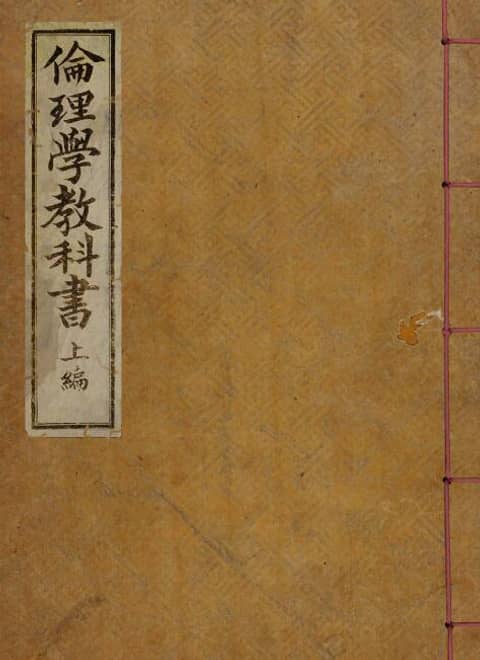 倫理學教科書
上編